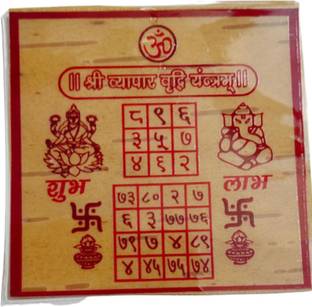 ॐ
|| श्री व्यापार वृद्धि यंन्त्रम् ||
८ १ ६
३ ५ ७
४ ६ २
शुभ
लाभ
७३ ८० २ ७
६ ३ ७७ ७६
७९ ७ ४ ८९
४ ४५ ७५ ७४